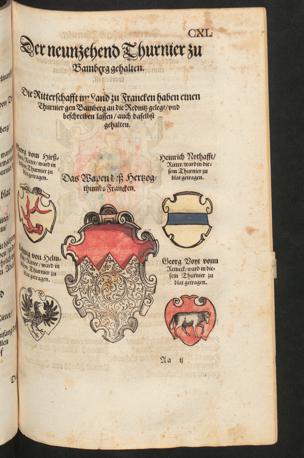 CXL
Der neunzehend Thurnier zu
Bamberg gehalten.
Die Ritterschafft im Land zu Francken haben einen
Thurnier gen Bamberg an die Rednitz gelegt/vnd
beschreiben lassen/auch daselbst
gehalten.
vom Hirß-
Ritter/ward in
Thurnier zu
blat getragen.
Das Wapen deß Hertzog-
thumbs Francken.
Heinrich Nothafft/
Ritter/ward in die-
sem Thurnier zu
blat getragen.
von Helm-
Ritter/ward in
Thurnier zu
getragen.
Georg Voyt vonn
Reineck/ward in die-
sem Thurnier zu
blat getragen.
Aa ij